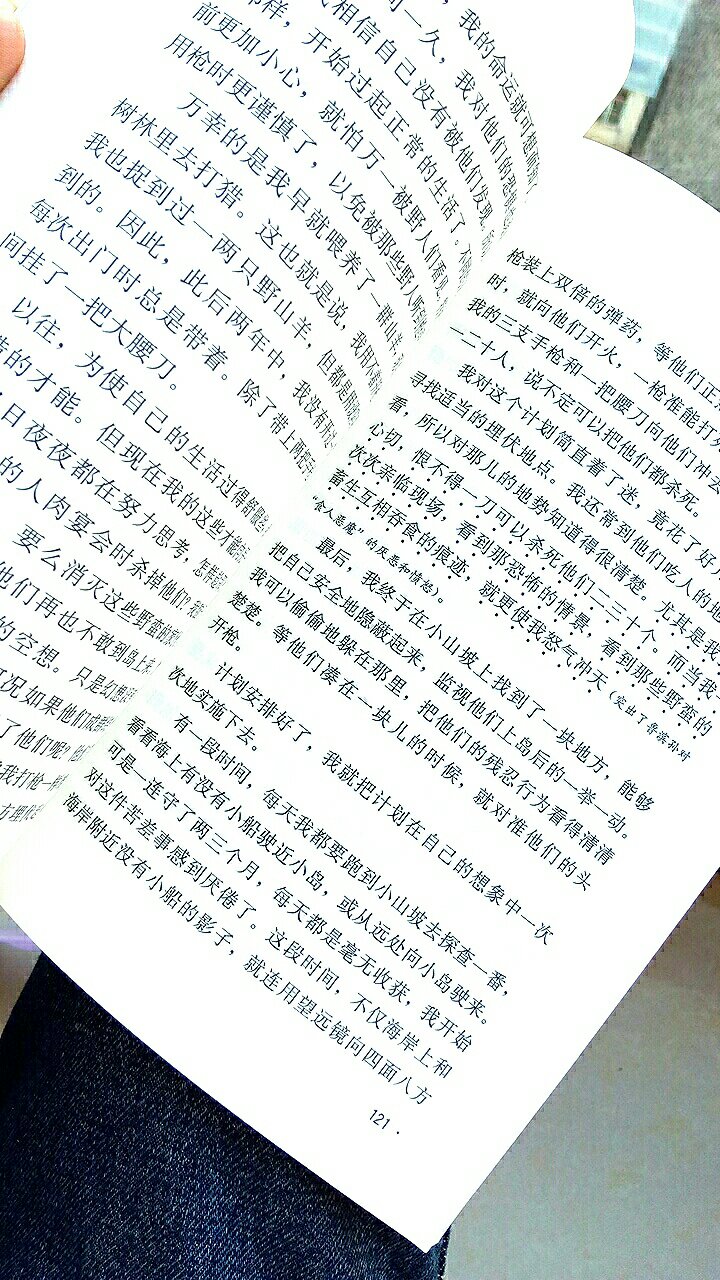 ，我的命运就可想而
一久，我对他们的恐
相信自己没有被他们发现
那样，开始过起正常的生活了。不
前更加小心，就怕万一被野人们看见
用枪时更谨慎了，以免被那些野人听到
万幸的是我早就喂养了一群山羊
树林里去打猎。这也就是说，我用不着
我也捉到过一两只野山羊，但都是用
到的。因此，此后两年中，我没有开过
每次出门时总是带着。除了带上两把手
间挂了一把大腰刀。
以往，为使自己的生活过得
的才能。但现在我的这些才能
日夜夜都在努力思考，怎样
的人肉宴会时杀掉他们?
要么消灭这些野蛮的
他们再也不敢到岛上
的空想。只是幻想
况如果他们
了他们呢?
我打枪一样
枪装上双倍的弹药，等他们正
时，就向他们开火，一枪准能打
我的三支手枪和一把腰刀向他们冲去
一二十人，说不定可以把他们都杀死。
我对这个计划简直着了迷，竟花了好几
寻找适当的埋伏地点。我还常到他们吃人的地
看，所以对那儿的地势知道得很清楚。尤其是我
心切，恨不得一刀可以杀死他们二三十个。而当我
次次亲临现场，看到那恐怖的情景，看到那些野蛮的
畜生互相吞食的痕迹，就更使我怒气冲天（突出了鲁滨孙对
“食人恶魔”的厌恶和愤怒）。
最后，我终于在小山坡上找到了一块地方，能够
把自己安全地隐蔽起来，监视他们上岛后的一举一动。
我可以偷偷地躲在那里，把他们的残忍行为看得清清
楚楚。等他们凑在一块儿的时候，就对准他们的头
开枪。
计划安排好了，我就把计划在自己的想象中一次
次地实施下去。
有一段时间，每天我都要跑到小山坡去探查一番，
看看海上有没有小船驶近小岛，或从远处向小岛驶来。
可是一连守了两三个月，每天都是毫无收获，我开始
对这件苦差事感到厌倦了。这段时间，不仅海岸上和
海岸附近没有小船的影子，就连用望远镜向四面八方
121